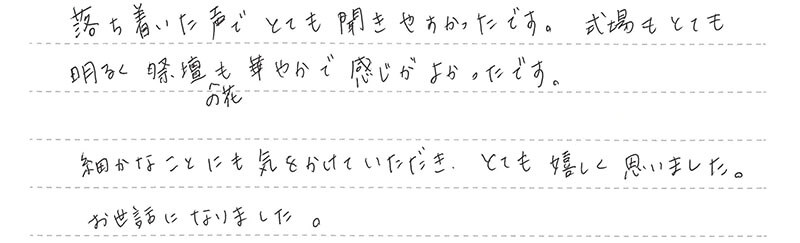 落ち着いた声でとても聞きやすかったです。 式場もとても
明るく祭壇の花も華やかで感じがよかったです。
細かなことにも気をかけていただき、とても嬉しく思いました。
お世話になりました。